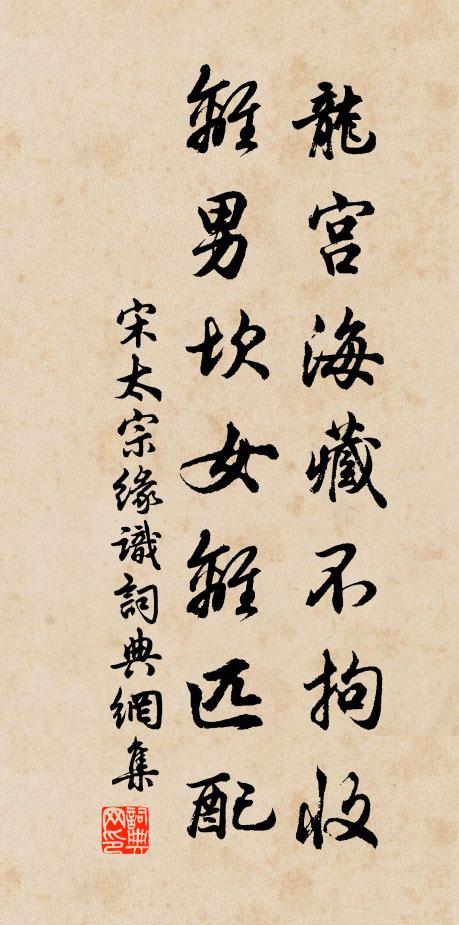 龍宫海藏不拘收
離男坎女離匹配
宋太宗緣識詞典網集
詞典网印